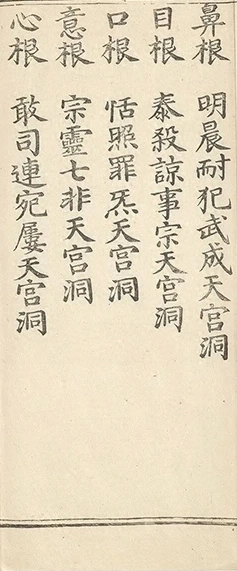 鼻根 明晨耐犯武成天宫洞
目根 泰殺諒事宗天宫洞
口根 恬照罪炁天宫洞
意根 宗靈七非天宫洞
心根 敢司連宛屢天宫洞